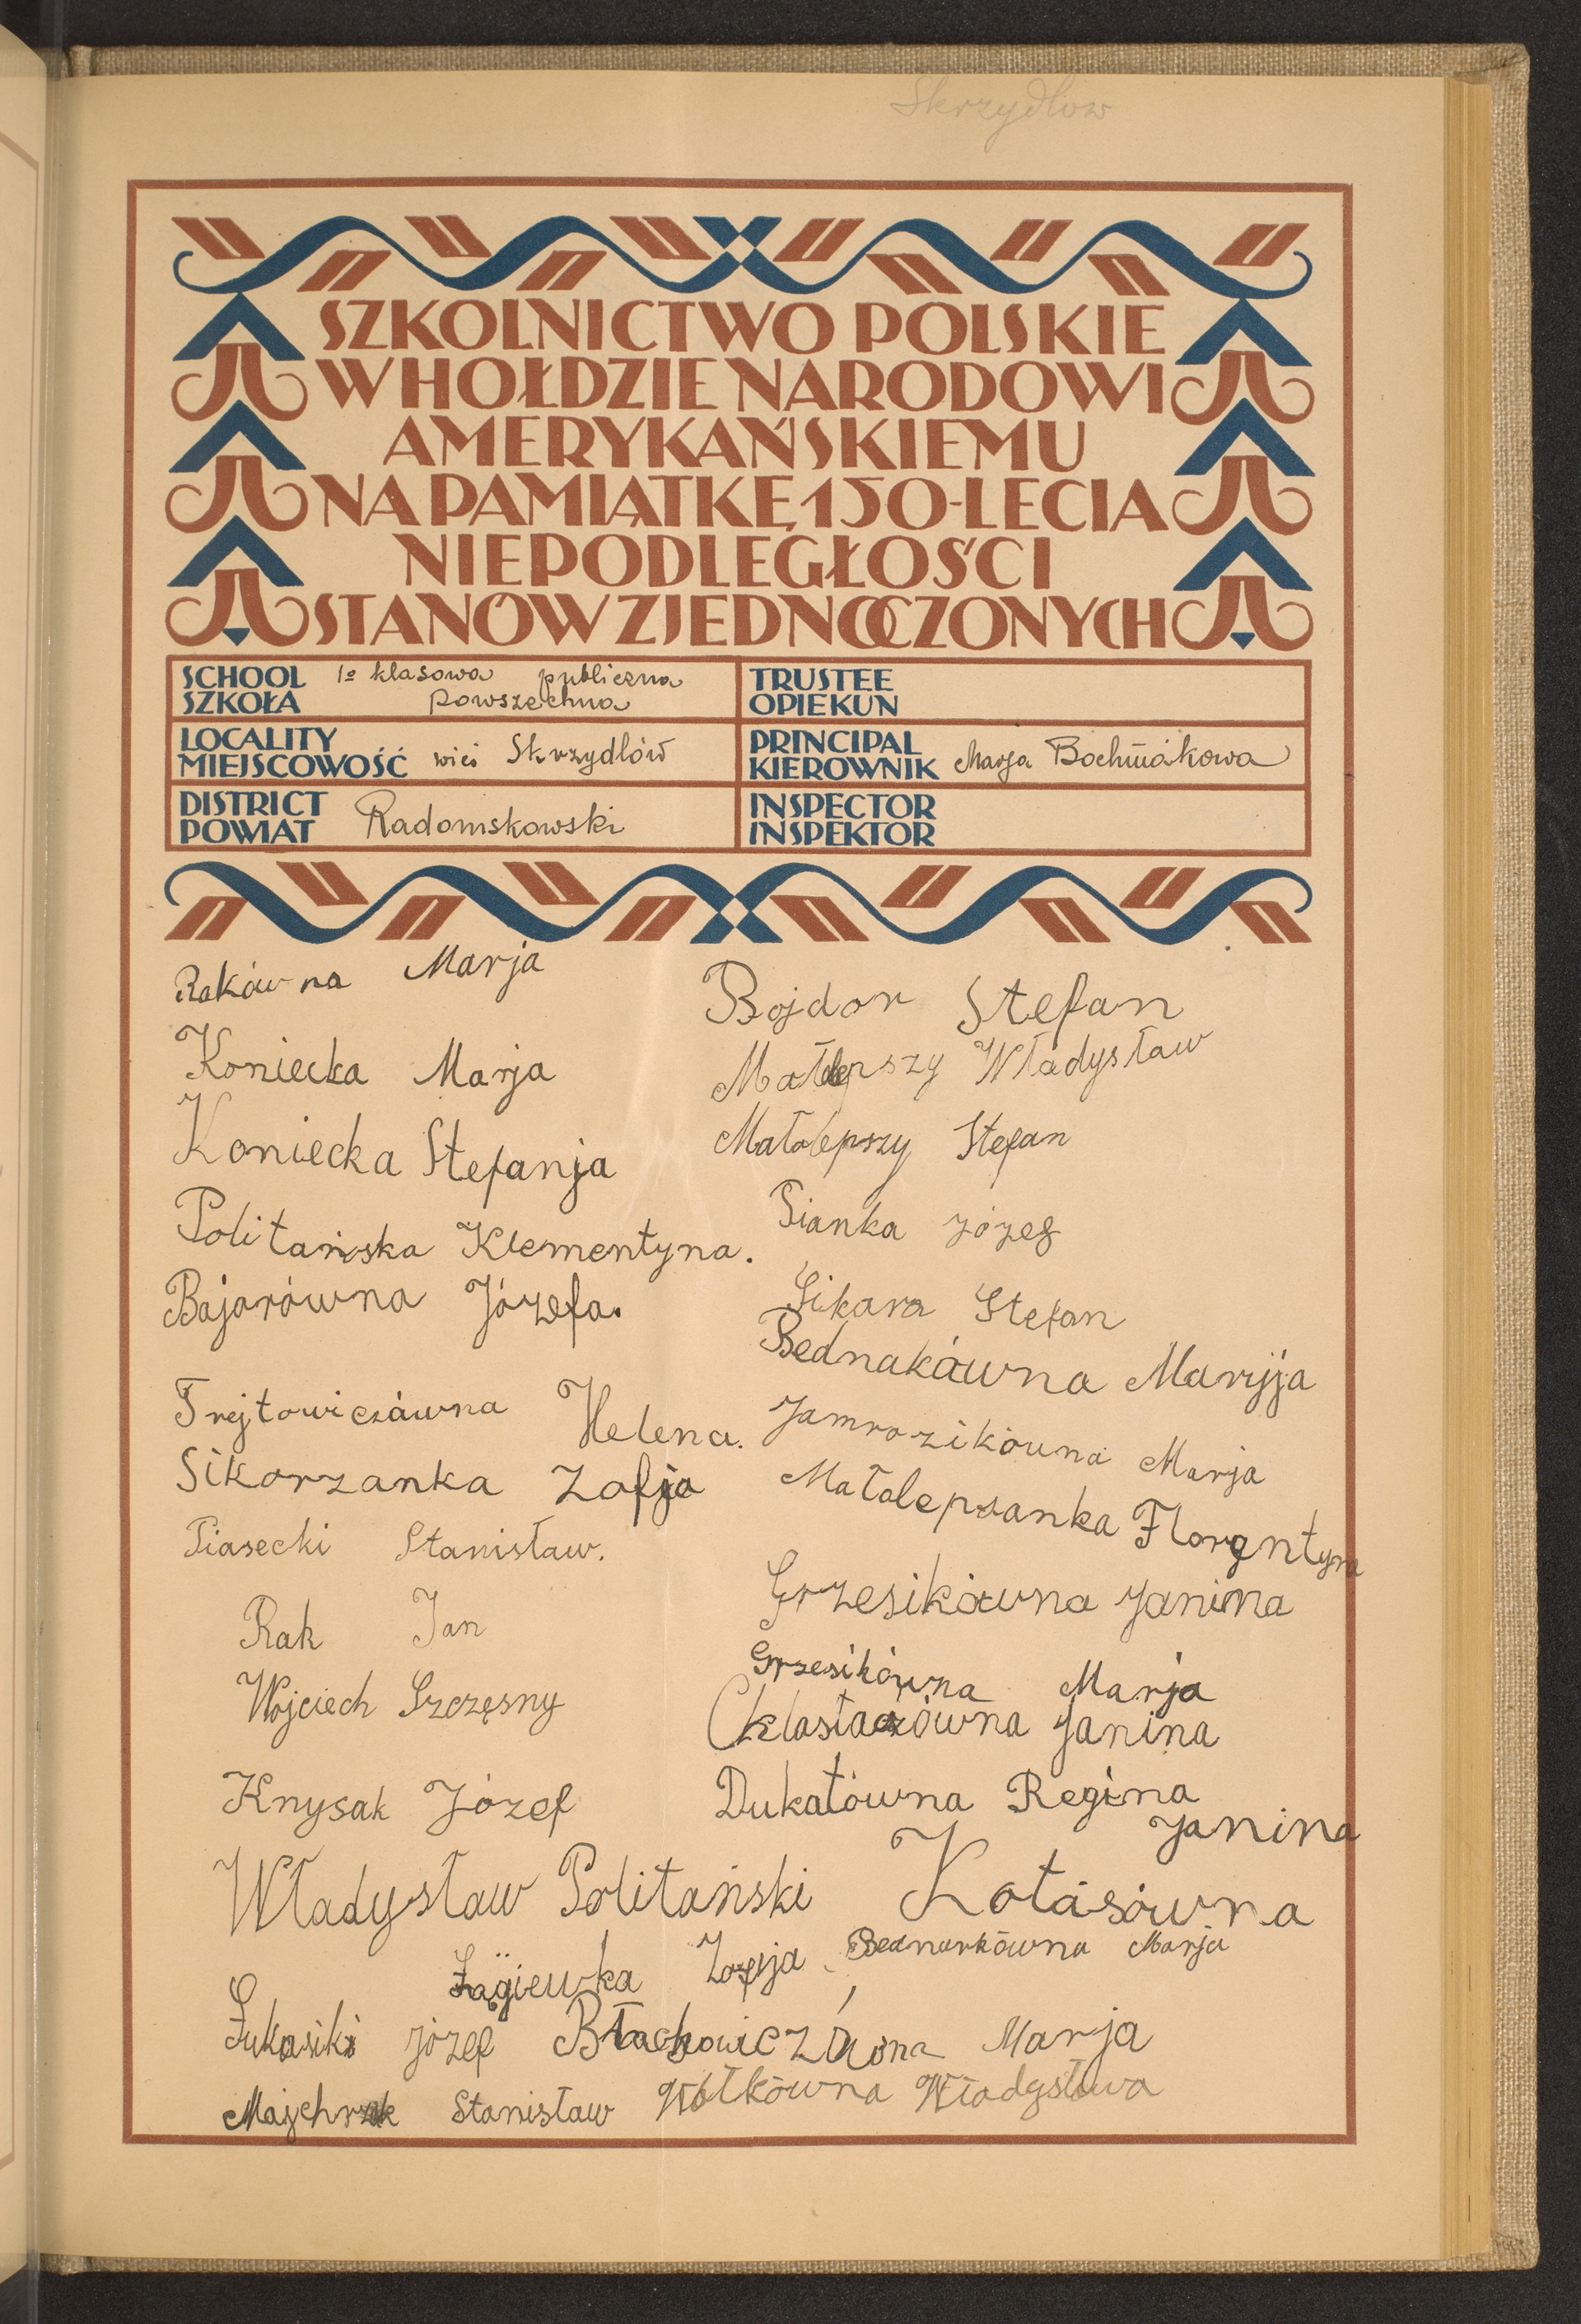 Skrzydlow
SZKOLNICTWO POLSKIE
W HOŁDZIE NARODOWI
AMERYKAŃSKIEMU
NA PAMIĄTKĘ 150-LECIA
NIEPODLEGŁOŚCI
STANÓW ZJEDNOCZONYCH
SCHOOL
SZKOŁA
1º klasowa publiczna
powszechna
TRUSTEE
OPIEKUN
LOCALITY
MIEJSCOWOŚĆ
wieś Skrzydlów
PRINCIPAL
KIEROWNIK
Marja
DISTRICT
POWIAT
Radomskowski
INSPECTOR
INSPEKTOR
Rakówna Marja
Koniecka Marja
Koniecka Stefanja
Politańska Klementyna.
Bajorówna Józefa.
Trejtowiczówna Helena.
Sikorzanka Zofja
Piasecki Stanisław.
Rak Jan
Wojciech Szczęsny
Knysak Józef
Władysław Politański
Żągiewka Zofja
Łukasik Józef
Majchrzak Stanisław
Bojdor Stefan
Małolepszy Władysław
Małolepszy Stefan
Pianka Józef
Sikora Stefan
Bednakówna Maryja
Jamrozikówna Marja
Małolepsanka Florentyna
Grzesikówna Janina
Grzesikówna Marja
Chlastaczówna Janina
Dukatówna Regina
Janina
Kotasówna
Bednarkówna Marja
Błachowiczówna Marja
Wółkówna Władysława